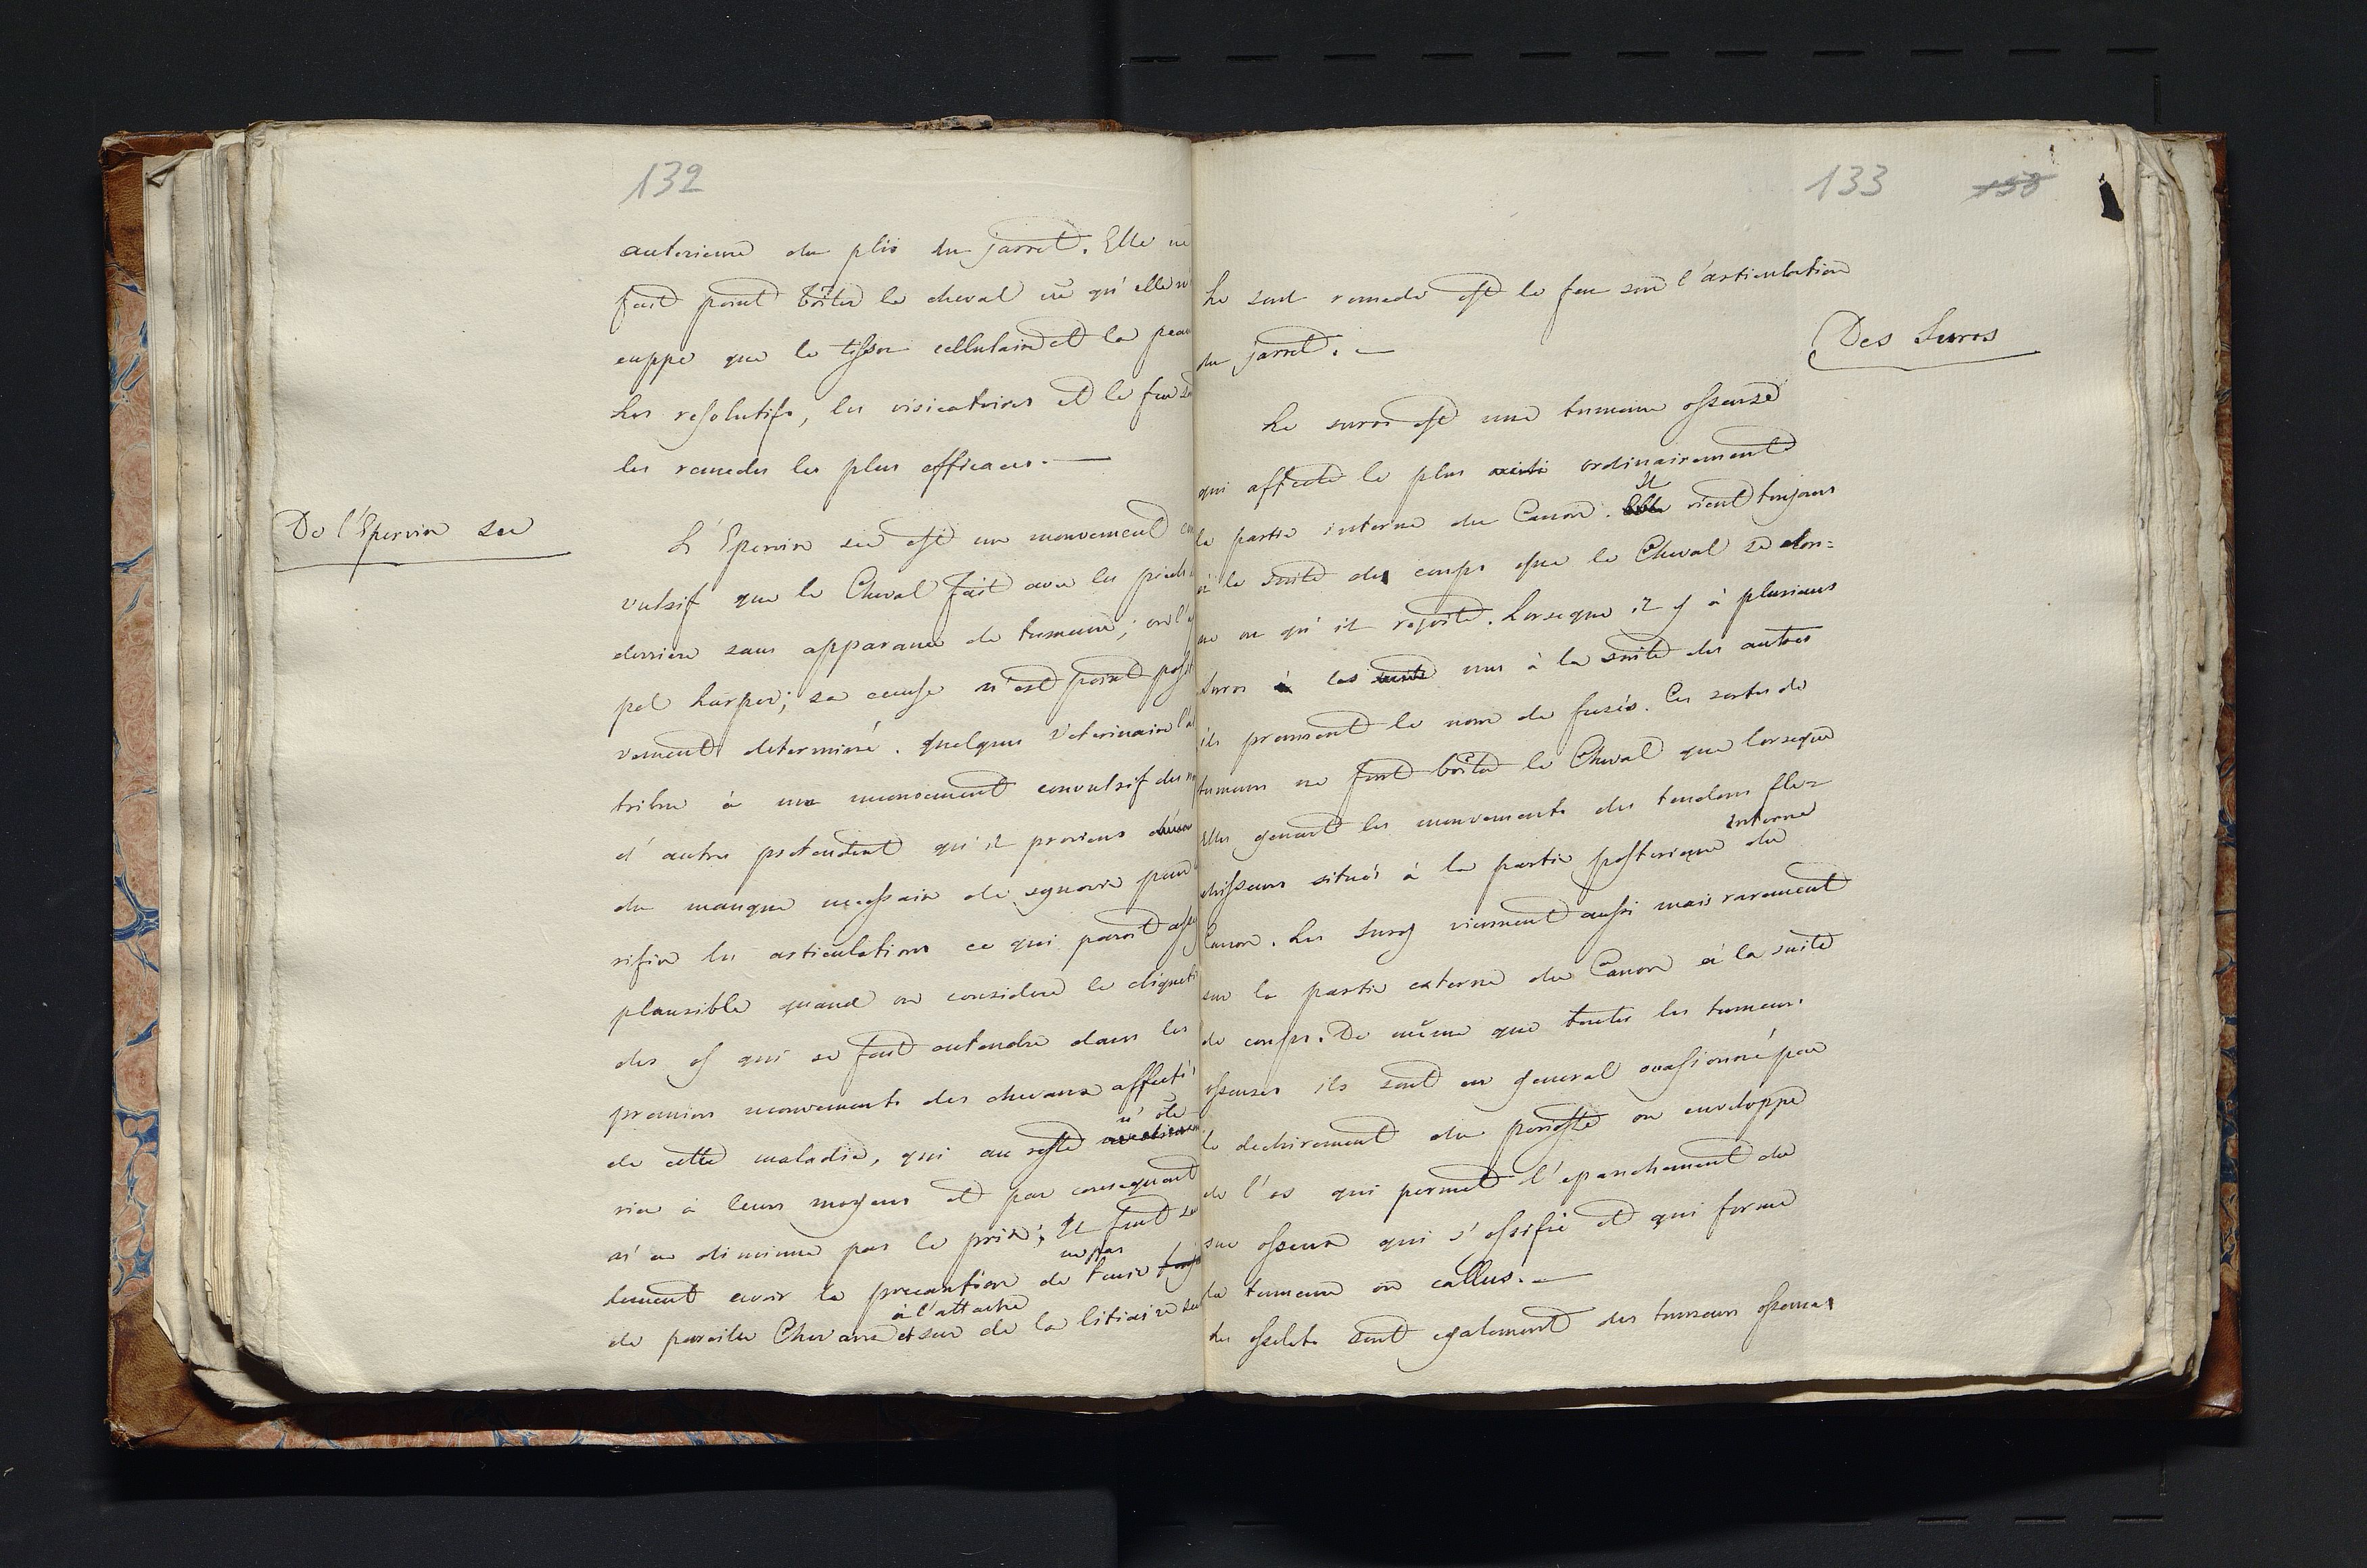 132
anterieure du plis du jarret. Elle ne
fait point boiter le cheval vu qu'elle n'
cuppe que le tissu cellulaire et la peau
Les resolutifs, les visicatoires et le feu
les remedes les plus efficaces.
De l'Epervin sec
L'Epervin sec est un mouvement con
vulsif que le Cheval fait avec les pieds
derriere sans apparance de tumeure; on l'
pel harper; sa cause n'est point posi
vement determiné. quelques Veterinaire l'at
tribue à un mouvement convulsif des
d'autres pretendent qu'il proviens
du manque necessaire de synovie pour
rifier les articulations ce qui paroit assez
plausible quand on considere le cliqueti
des os qui se fait entendre dans les
premiers mouvements des chevaux affectés
de cette maladie, qui au reste n'ôte
rien à leurs moyens et par consequent
n'en diminue pas le prix; Il faut seu
lement avoir la precaution de ne pas tenir
de pareils Chevaux à l'attache et sur de la litiaire
133
153
Le seul remede est le feu sur l'articulation
du jarret.
Des Suros
Le suros est une tumeure osseuse
qui affecte le plus ordinairement
la partie interne du Canon. Il vient toujours
à la suite des coups que le Cheval se don=
ne ou qu'il reçoite. Lorseque il y à plusieurs
Suros les uns à la suite des autres
ils prennent le nom de fusée. Ces sortes de
tumeurs ne font boiter le Cheval que lorseque
Elles genent les mouvements des tendons fle=
chisseurs situés à la partie posterieure interne du
Canon. Les Suros viennent aussi mais rarement
sur la partie externe du Canon à la suite
de coups. De même que toutes les tumeurs
osseuses ils sont en general occasionné par
le dechirement du perioste ou enveloppe
de l'os qui permet l'epanchement du
suc osseux qui s'ossifie et qui forme
la tumeure ou callus.
Les osselets sont egalement des tumeurs osseuses